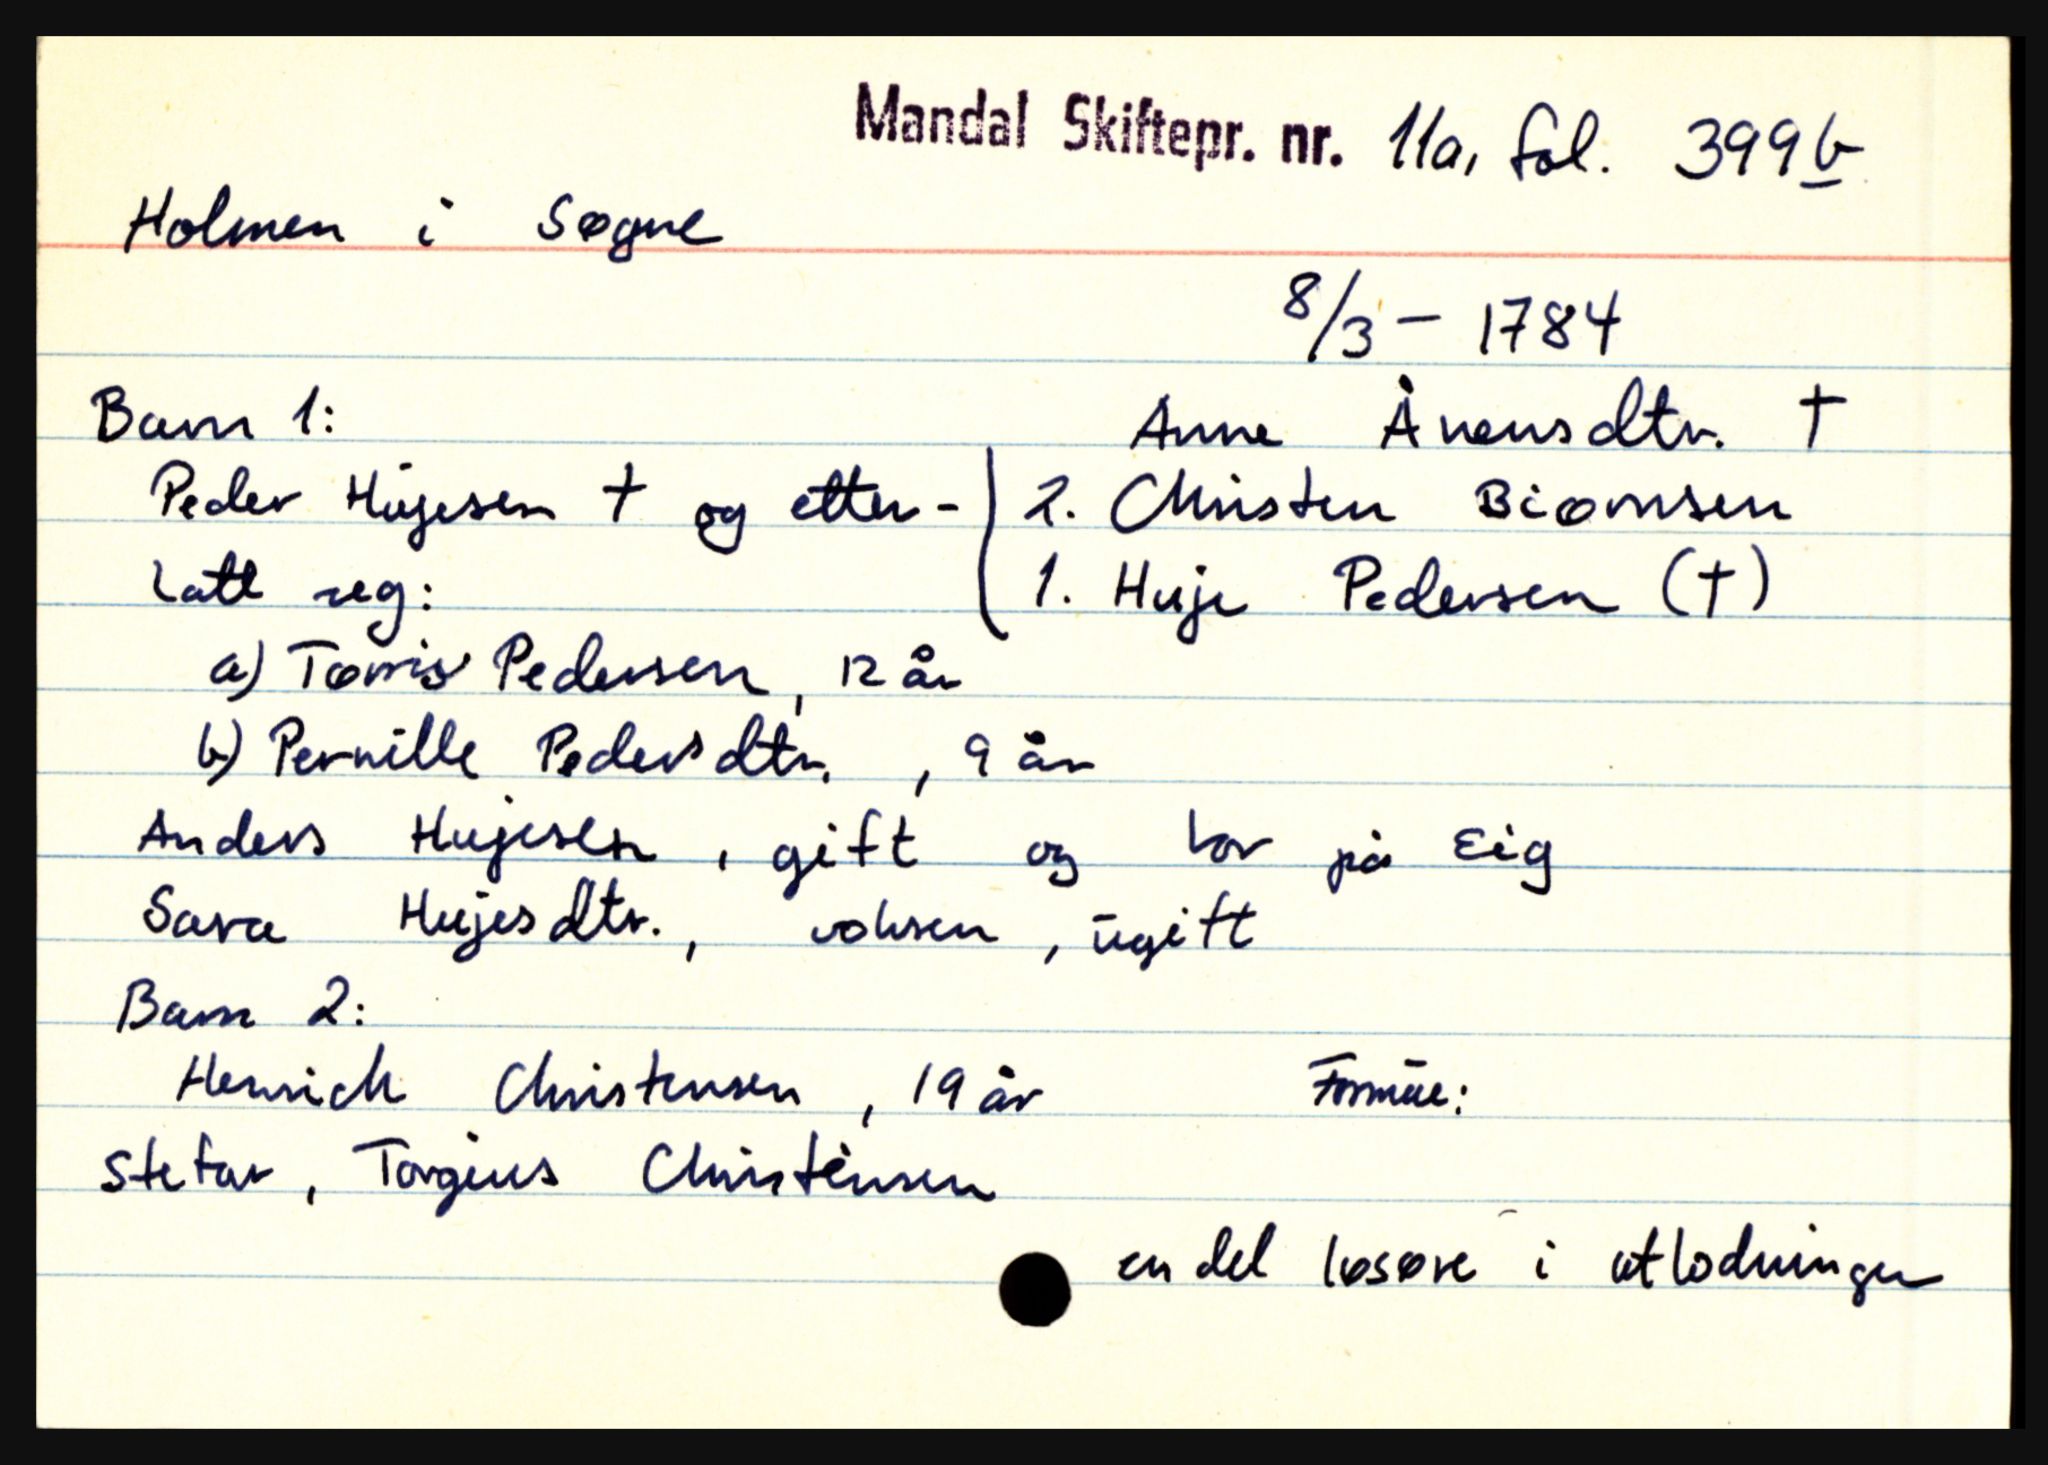 Mandal Skiftepr. nr. 11a, fol. 399b
Holmen i Søgne
8/3 - 1784
Barn 1:
Anne Ånensdtr. †
Peder Hujesen † og etter-
2. Christen Biørnsen
latt seg:
1. Huje Pedersen (†)
a) Tørris Pedersen, 12 år
b) Pernille Pedersdtr., 9 år
Anders Hujesen, gift og bor på Eig
Sara Hujesdtr., voksen, ugift
Barn 2:
Henrich Christensen, 19 år
Formue:
Stefar, Torgius Christensen
en del løsøre i utlodningen